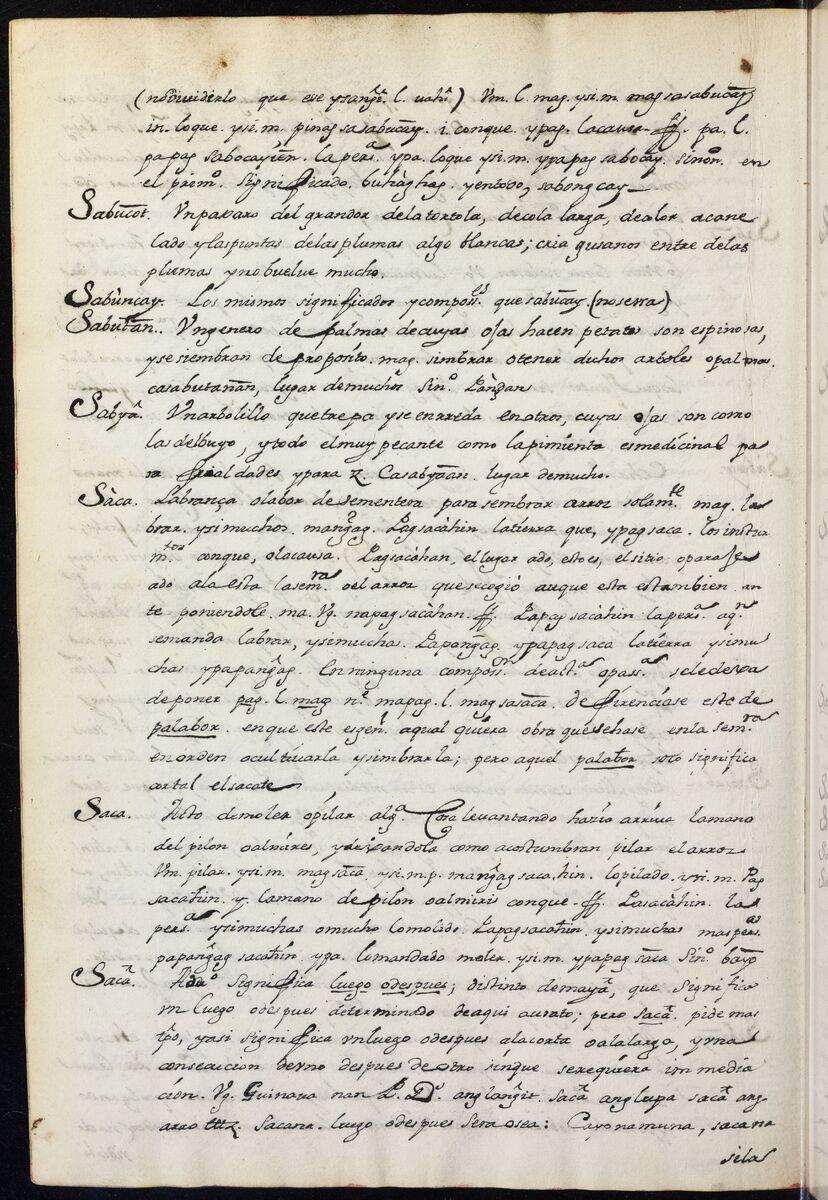 (no dividirlo que ese ysang̃. l. uahi.) Vm. l. mag. ysi.m. mag sasabucay
in. loque. ysi.m. pinag sasabucay. i. conque. ypag. la causa. ff. pa. l.
papag sabocayien. la pers.ª ypa. loque ysi.m. ypapag sabocay. Sinon. en
el prem.º significado. butiagtiag. y en todo, sabong cay
Sabucot. Vn paxaro del grandor de la tortola, de cola larga, de color acane
lado y las puntas de las plumas algo blancas; cria gusanos entre de las
plumas y no buelve mucho.
Sabùncay. Los mismos significados y composs.es que sabucay. (no serra)
Sabutan. Vn genero de palmas de cuyas ojas hacen petates son espinosas,
y se siembran de proposito. mag. simbrar o tener dichos arboles o palmas.
casabutanan, lugar de muchos Sin.º Pangdan
Sabya. Vn arbolillo que trepa y se enrreda en otros, cuyas ojas son como
las del buyo, y todo el muy pecante como la pimienta es medicinal pa
ra frialdades y para &. Casabyaan. lugar de mucho.
Sàca. Labrança o labor de sementera para sembrar arroz solam.te mag. la
brar. ysi muchos. mangag. Pagsacàhin la tierra que, ypag saca. los instru
m.tos conque, o la causa. Pagsacàhan, el lugar ado, esto es, el sitio o paraje
ado a la esta la sem.ra o el arroz que se cogió auque esta es tambien an
te poniendole. na. Vg. napag sacàhan. ff. Papag sacàhin la pers.ª aq.n
se manda labrar, ysi muchas. Papangag. ypapag saca la tierra ysi mu
chas ypapangag. En ninguna composs.on de act.ª o pass.ª se le dexa
de poner pag. l. mag n.º mapag. l. mag sasaca. diferénciase este de
palabor. en que este es gen.l a qual quiera obra que se hase en la sem.ra
en orden ocultivarla y simbrarla; pero aquel palabor solo significa
cortal el sacate
Saca. Acto de moler o pilar alg.ª Cosa levantando hazia arriva la mano
del pilon o almires, y dexandola como acostumbran pilar el arroz
Vm. pilar. ysi.m. mag saca, ysi.m.p. mangag saca, hin. lo pilado. ysi.m. Pag
sacahin. y. la mano de pilon o almiris conque. ff. Pasacàhin. la
pers.ª ysi muchas o mucho lo molido. Papagsacahin. ysi muchas mas pers.as
papangag sacahin ypa. lo mandado moler, ysi.m. ypapag saca Sin.º bayo
Saca. Adu.º significa luego o despues; distinto de maya, que significa
vn luego o despues determinado de aqui aurato; pero saca. pide mas
tpo, y asi significa vn luego o despues a la corta o a la larga, y vna
consecucion de vno despues de otro sinque se requiera inmedia
ción. Vg. Guinaua nan P. D.s ang langit. saca ang lupa saca ang.
arro &. Sacana. luego o despues sera o sea: Cayo namuna, sacana
sila